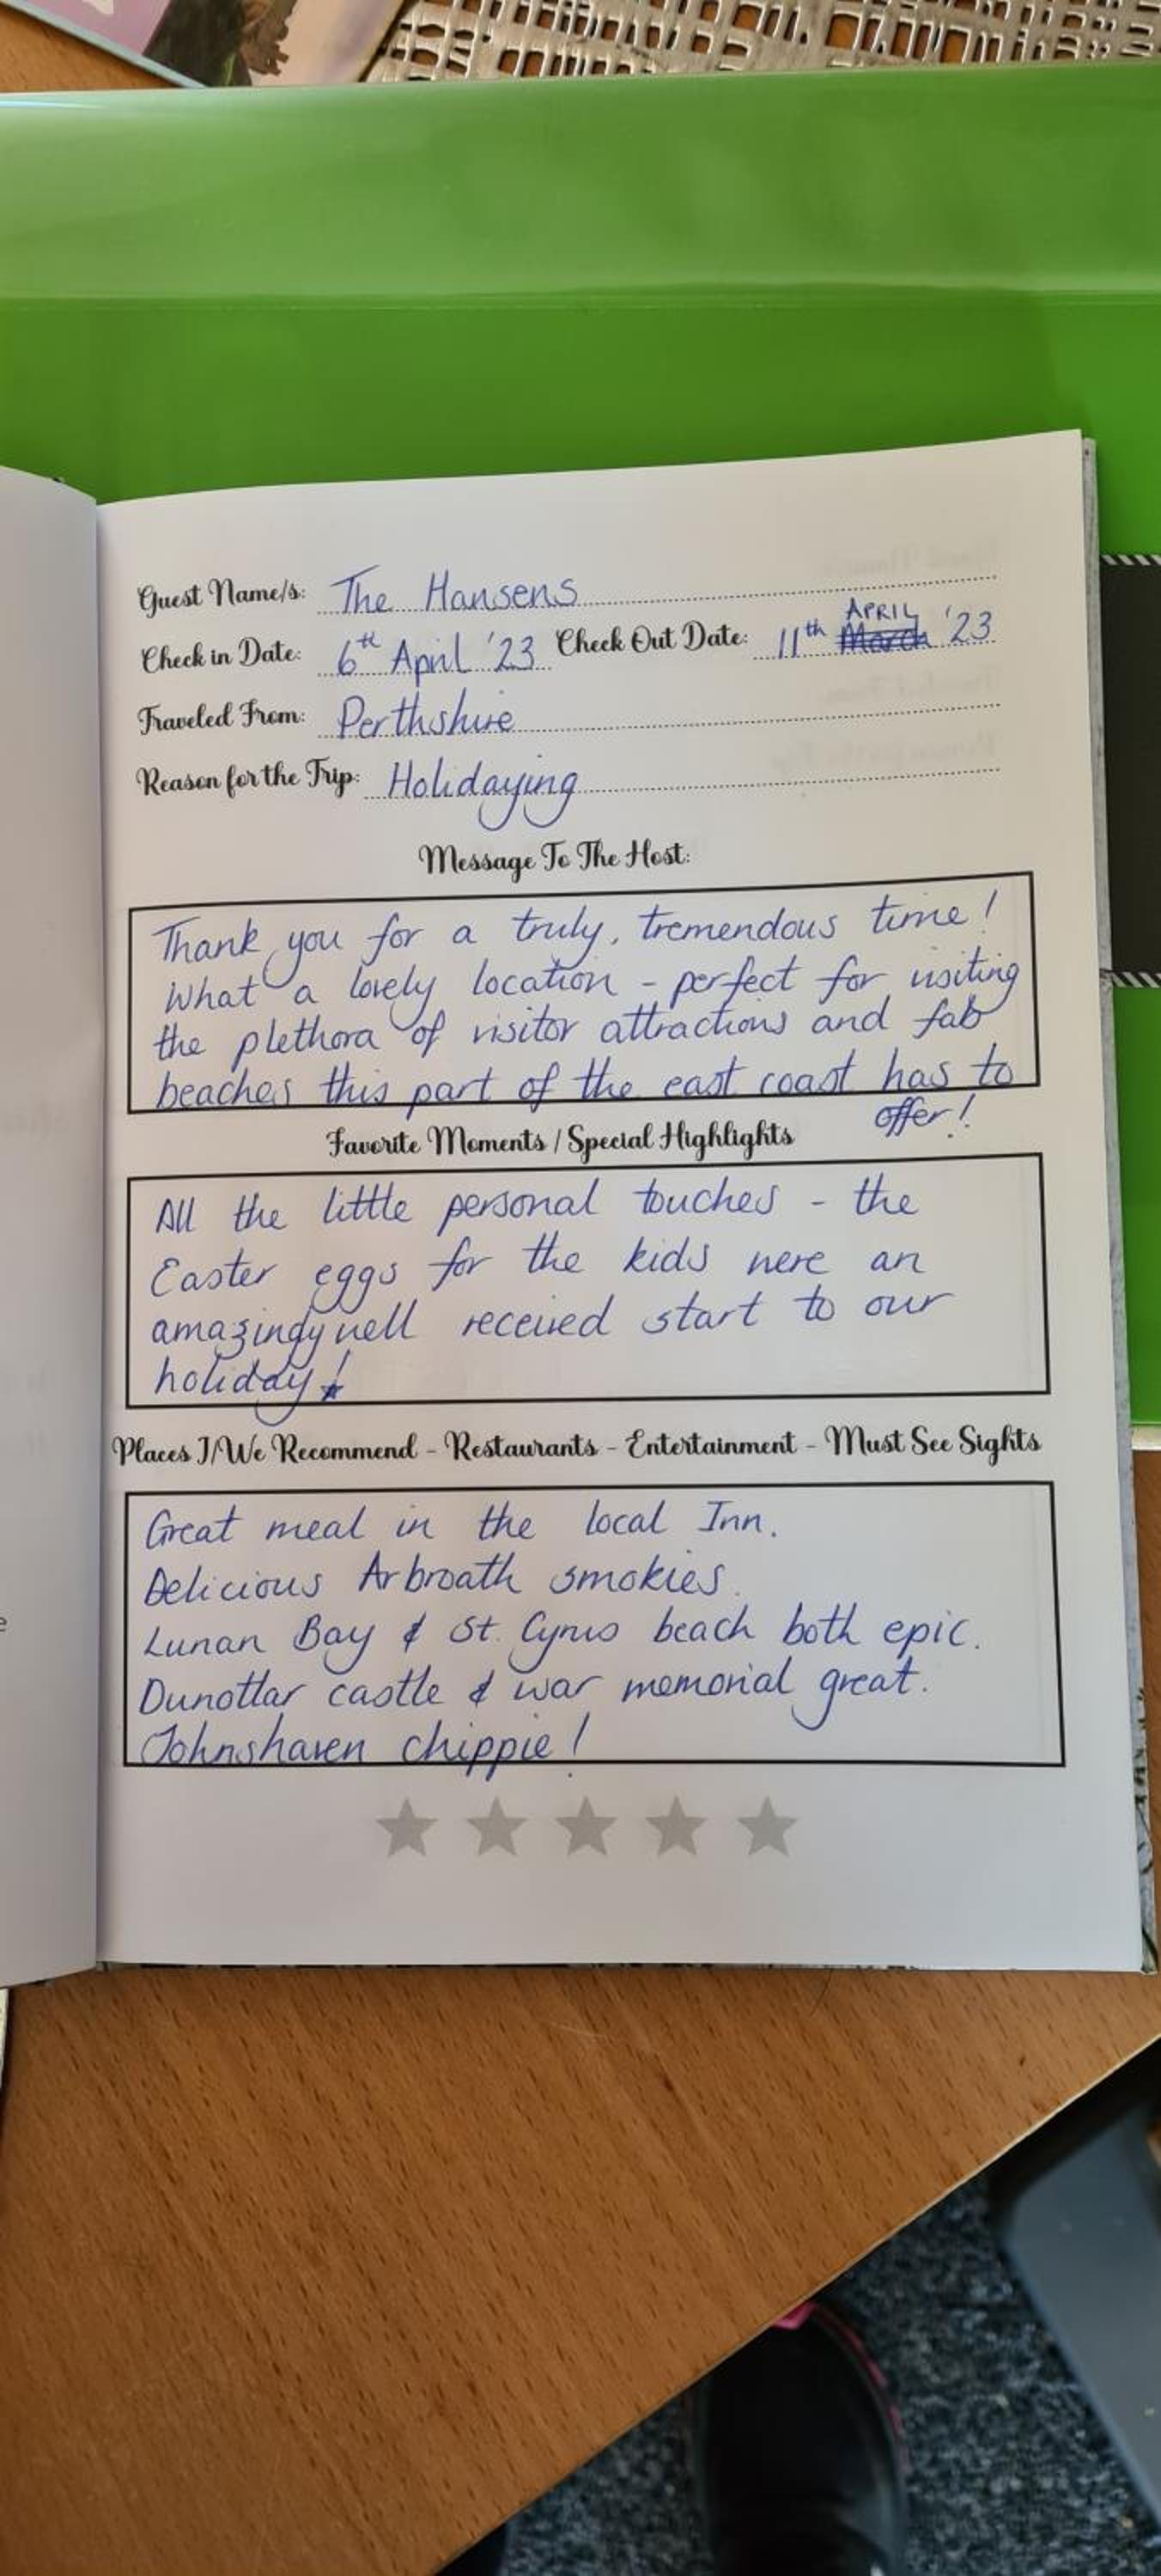 Guest Name/s: The Hansens
Check in Date: 6th April '23 Check Out Date: 11th March APRIL '23
Traveled From: Perthshire
Reason for the Trip: Holidaying
Message To The Host:
Thank you for a truly, tremendous time!
What a lovely location - perfect for visiting
the plethora of visitor attractions and fab
beaches this part of the east coast has to
offer!
Favorite Moments / Special Highlights
All the little personal touches - the
Easter eggs for the kids were an
amazingy well received start to our
holiday!
Places I/We Recommend - Restaurants - Entertainment - Must See Sights
Great meal in the local Inn.
Delicious Arbroath smokies.
Lunan Bay & St. Cyrus beach both epic.
Dunottar castle & war memorial great.
Johnshaven chippie!